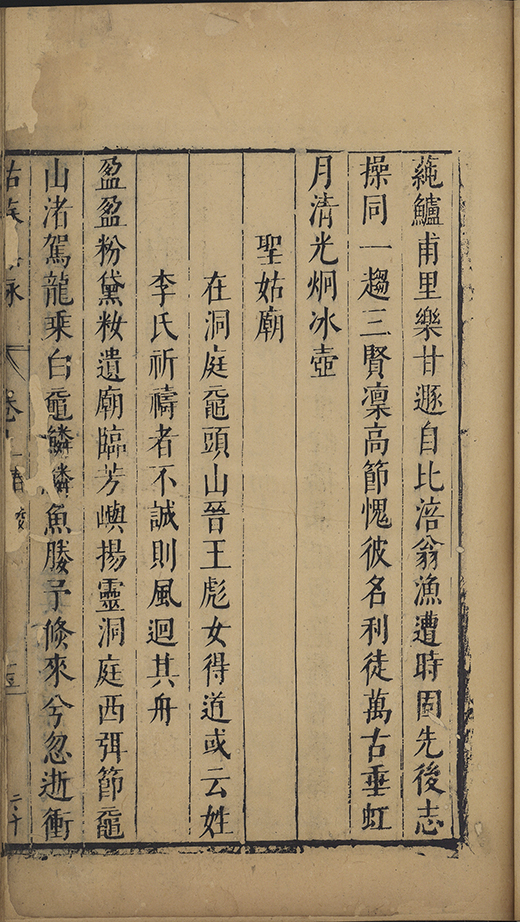 蒓鱸甫里樂甘遯自比涪翁漁遭時固先後志
操同一趨三賢凜高節愧彼名利徒萬古垂虹
月清光炯冰壺
聖姑廟
在洞庭黿頭山晉王彪女得道或云姓
李氏祈禱者不誠則風迴其舟
盈盈粉黛粧遺廟臨芳嶼揚靈洞庭西弭節黿
山渚駕龍乗白黿鱗鱗魚媵予倐來兮忽逝衝
姑蘇 詠 卷
二十